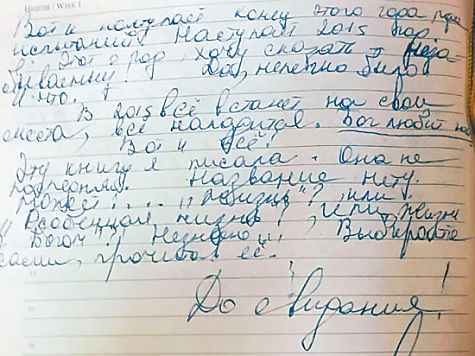 Неделя / Week 1
Вот и наступает конец этого года
испытаний! Наступает 2015 год.
Этот год, хочу сказать
Да, нелегко было
и что.
В 2015 всё встанет на свои
места, всё наладится. Бог любит нас
Вот и всё!
Эту книгу я писала. Она не
Название нету.
Может!.... "Жизнь"? или
жизнь"! , или, "Жизнь
с Богом"! Не знаю! Выберайте
сами, прочитав её.
До свидания!